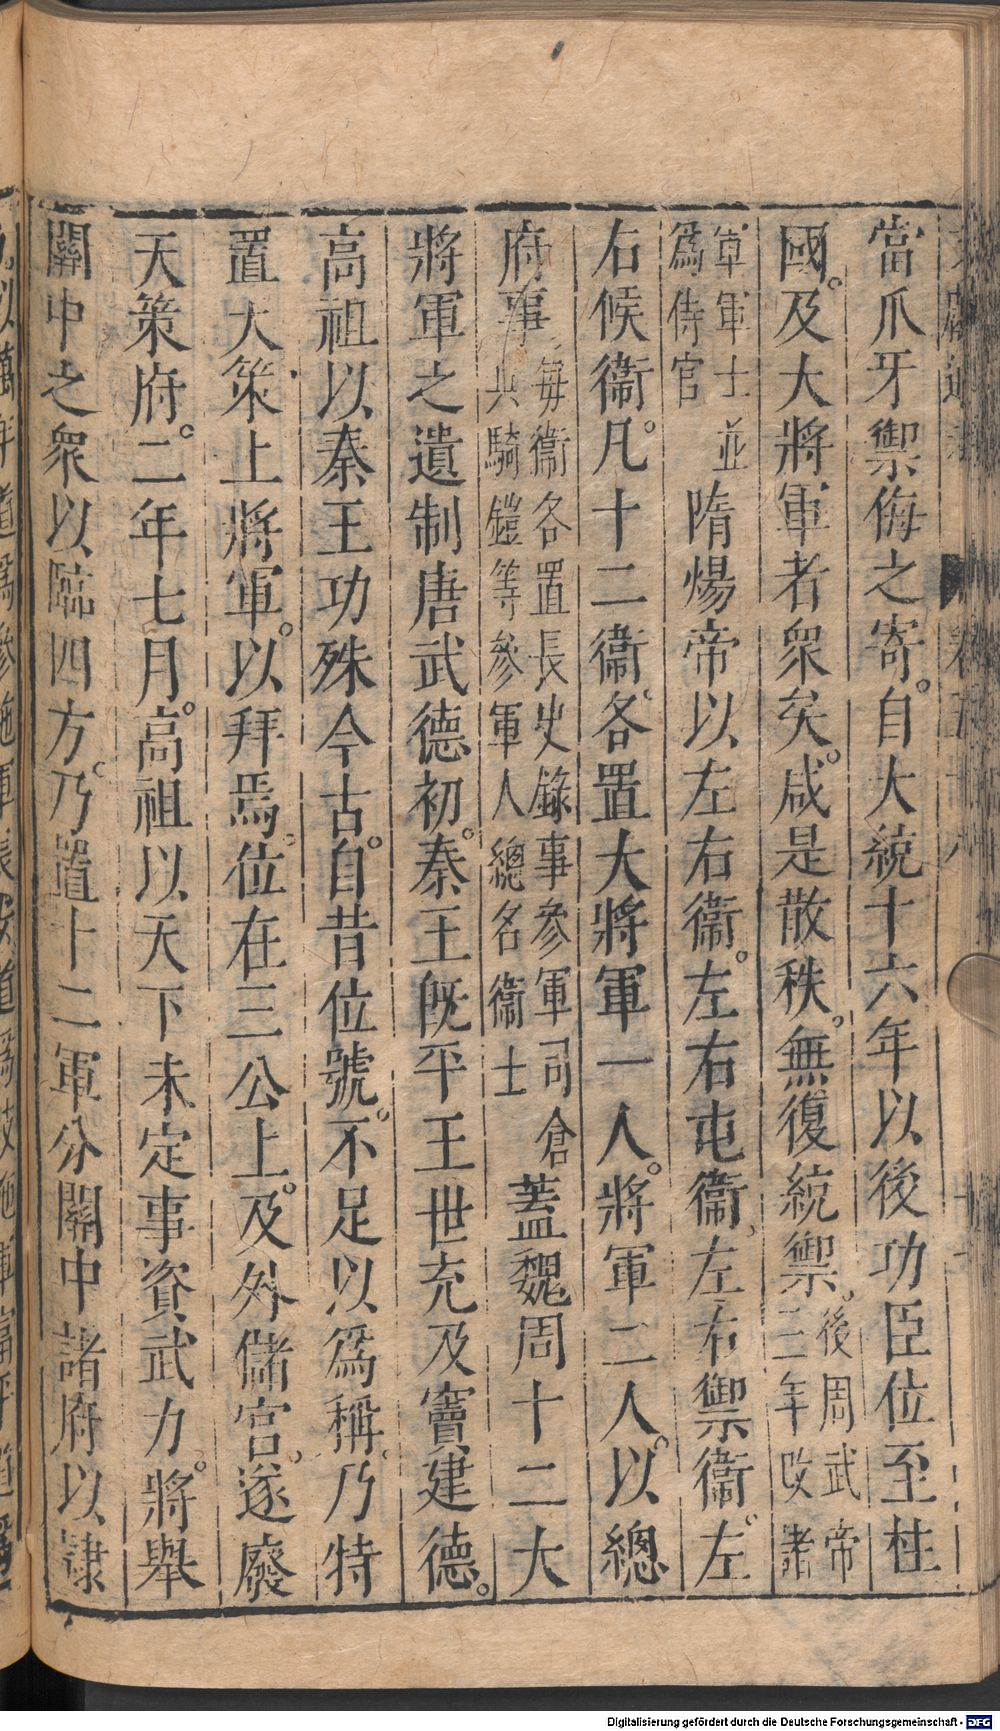 當爪牙禦侮之寄。自大統十六年以後功臣位至柱
國。及大將軍者衆矣。咸是散秩。無復統禦。後周武帝三年改諸
軍軍士並爲侍官隋煬帝以左右衞。左右屯衞、左右禦衞。左
右候衞。凡十二衞、各置大將軍一人。將軍二人。以總
府事、每衞各置長史錄事參軍司倉兵騎鎧等參軍人總名衞士蓋魏周十二大
將軍之遺制唐武德初。秦王旣平王世充及竇建德。
高祖以秦王功殊今古。自昔位號。不足以爲稱。乃特
置大策上將軍。以拜焉。位在三公上。及外儲宮。遂廢
天策府。二年七月。高祖以天下未定事資武力。將舉
關中之衆以臨四方。乃置十二軍分關中諸府以隸
Digitalisierung gefördert durch die Deutsche Forschungsgemeinschaft - DFG